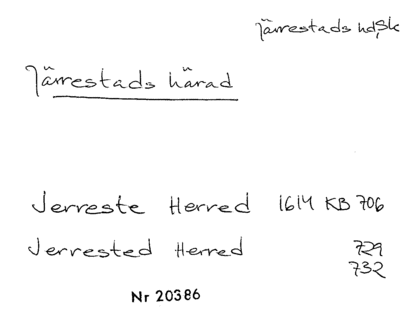 Järrestads hd, Sk
Järrestads härad
Jerreste Herred 1614 KB 706
Jerrested Herred 729
732
Nr 20386